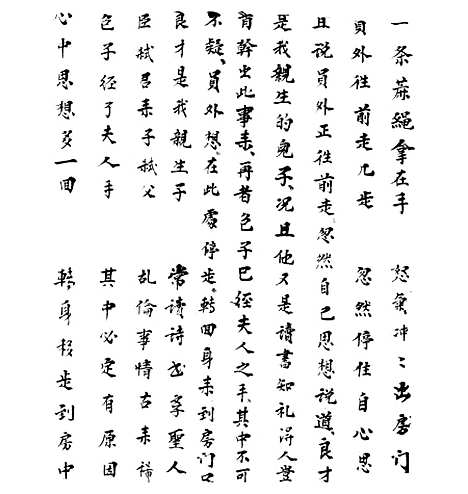 一条蔴绳拿在手　怒气冲冲出房门
員外往前走几步　忽然停住自心思
且说員外正往前走，忽然自己思想说道，良才
是我親生的兒子，况且他又是读書知礼浔人，岂
肯幹出此事来，再者包子已经夫人之手，其中不可
不疑，員外想在此處停步，轉回身来到房门口
良才是我親生子　常读诗书孝聖人
臣弑君来子弑父　乱倫事情古来
包子经了夫人手　其中必定有原因
心中思想多一回　轉身移步到房中